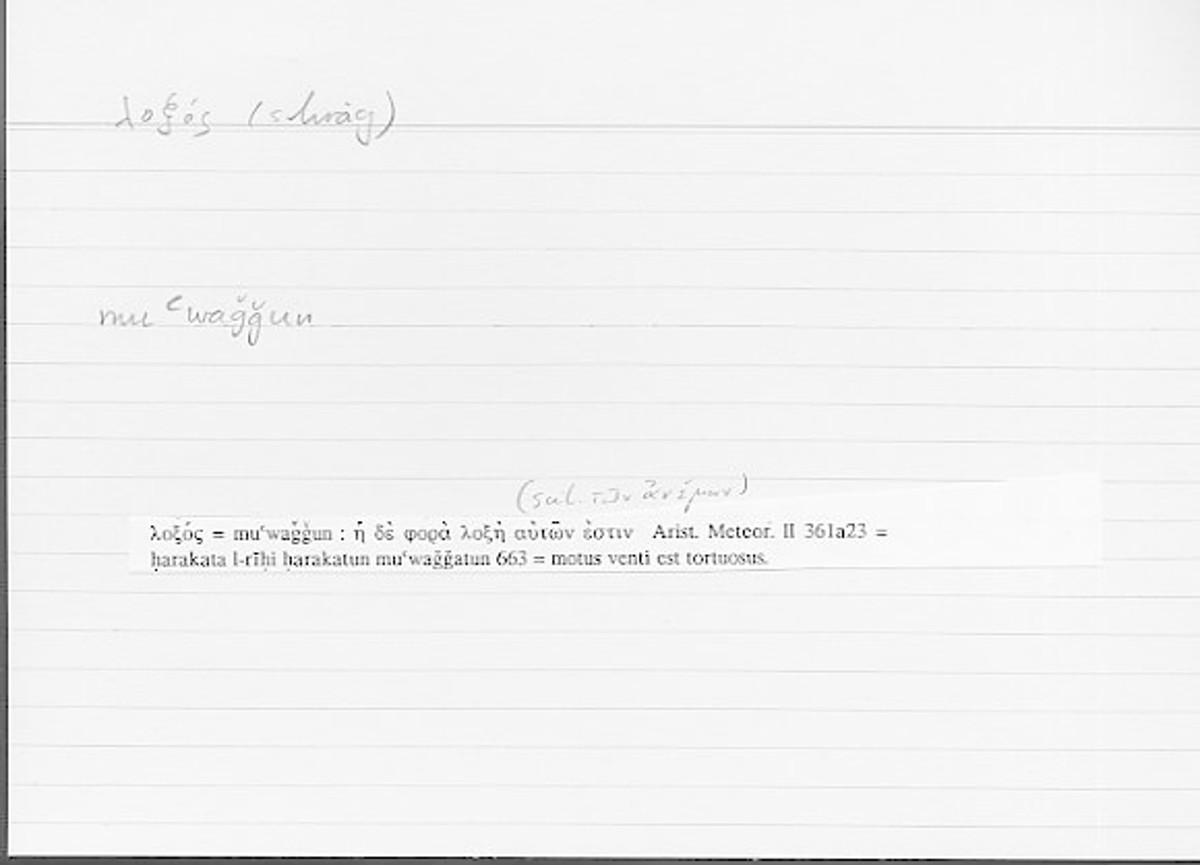 λοξός (schräg)
muʿwaǧǧun
(scil. τῶν ἀνέμων)
λοξός = muʿwaǧǧun : ἡ δὲ φορὰ λοξὴ αὐτῶν ἐστιν Arist. Meteor. II 361a23 =
ḥarakata l-rīḥi ḥarakatun muʿwaǧǧatun 663 = motus venti est tortuosus.